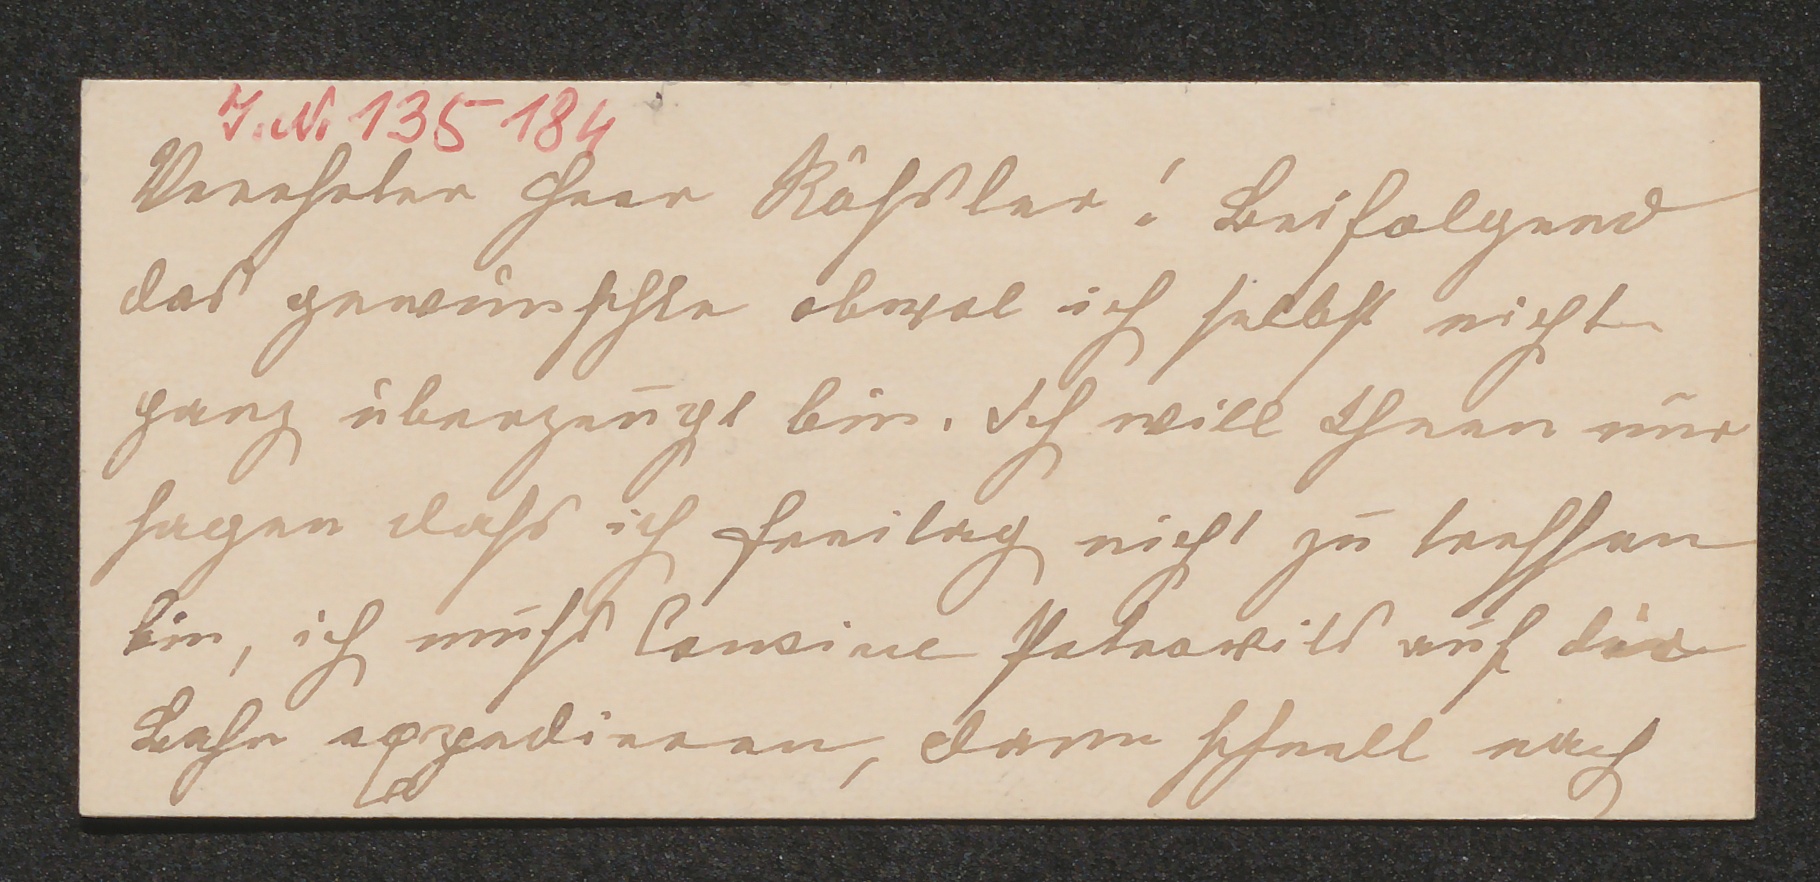 J. N. 135184
Verehrter Herr Rößler! Beifolgend
das gewünschte obwol ich selbst nicht
ganz überzeugt bin. Ich will Ihnen nur
sagen dafs ich Freitag nicht zu treffen
bin, ich mufs Cousine Petrowits auf die
Bahn expedieren, dann schnell nach